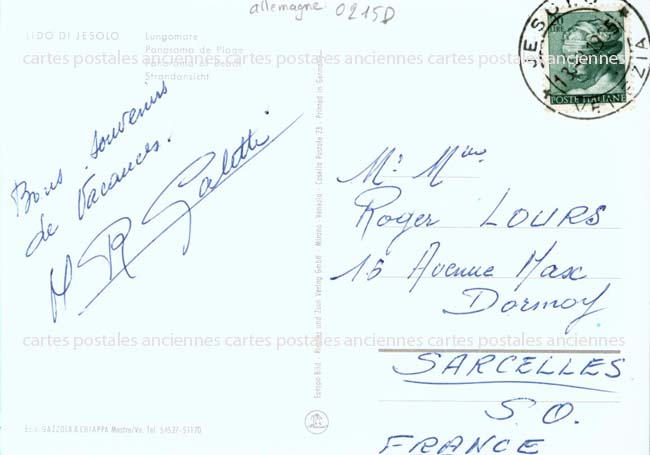 allemagne 0215D
LIDO DI JESOLO
Lungomare
Panorama de Plage
Panorama of Beach
Strandansicht
POSTE ITALIANE
JESOLO
VENEZIA
Bons souvenirs
de Vacances.
Galetti
Mr. Mme
Roger LOURS
15 Avenue Max
Dormoy
SARCELLES
S.O.
FRANCE
cartes postales anciennes cartes postales anciennes cartes postales anciennes
cartes postales anciennes cartes postales anciennes cartes postales anciennes
Verlag GmbH - Milano Venezia - Casella Postale 23 - Printed in Germany
Ed. GAZZOLA & CHIAPPA Mestre/Ve. Tel. 51527-51170